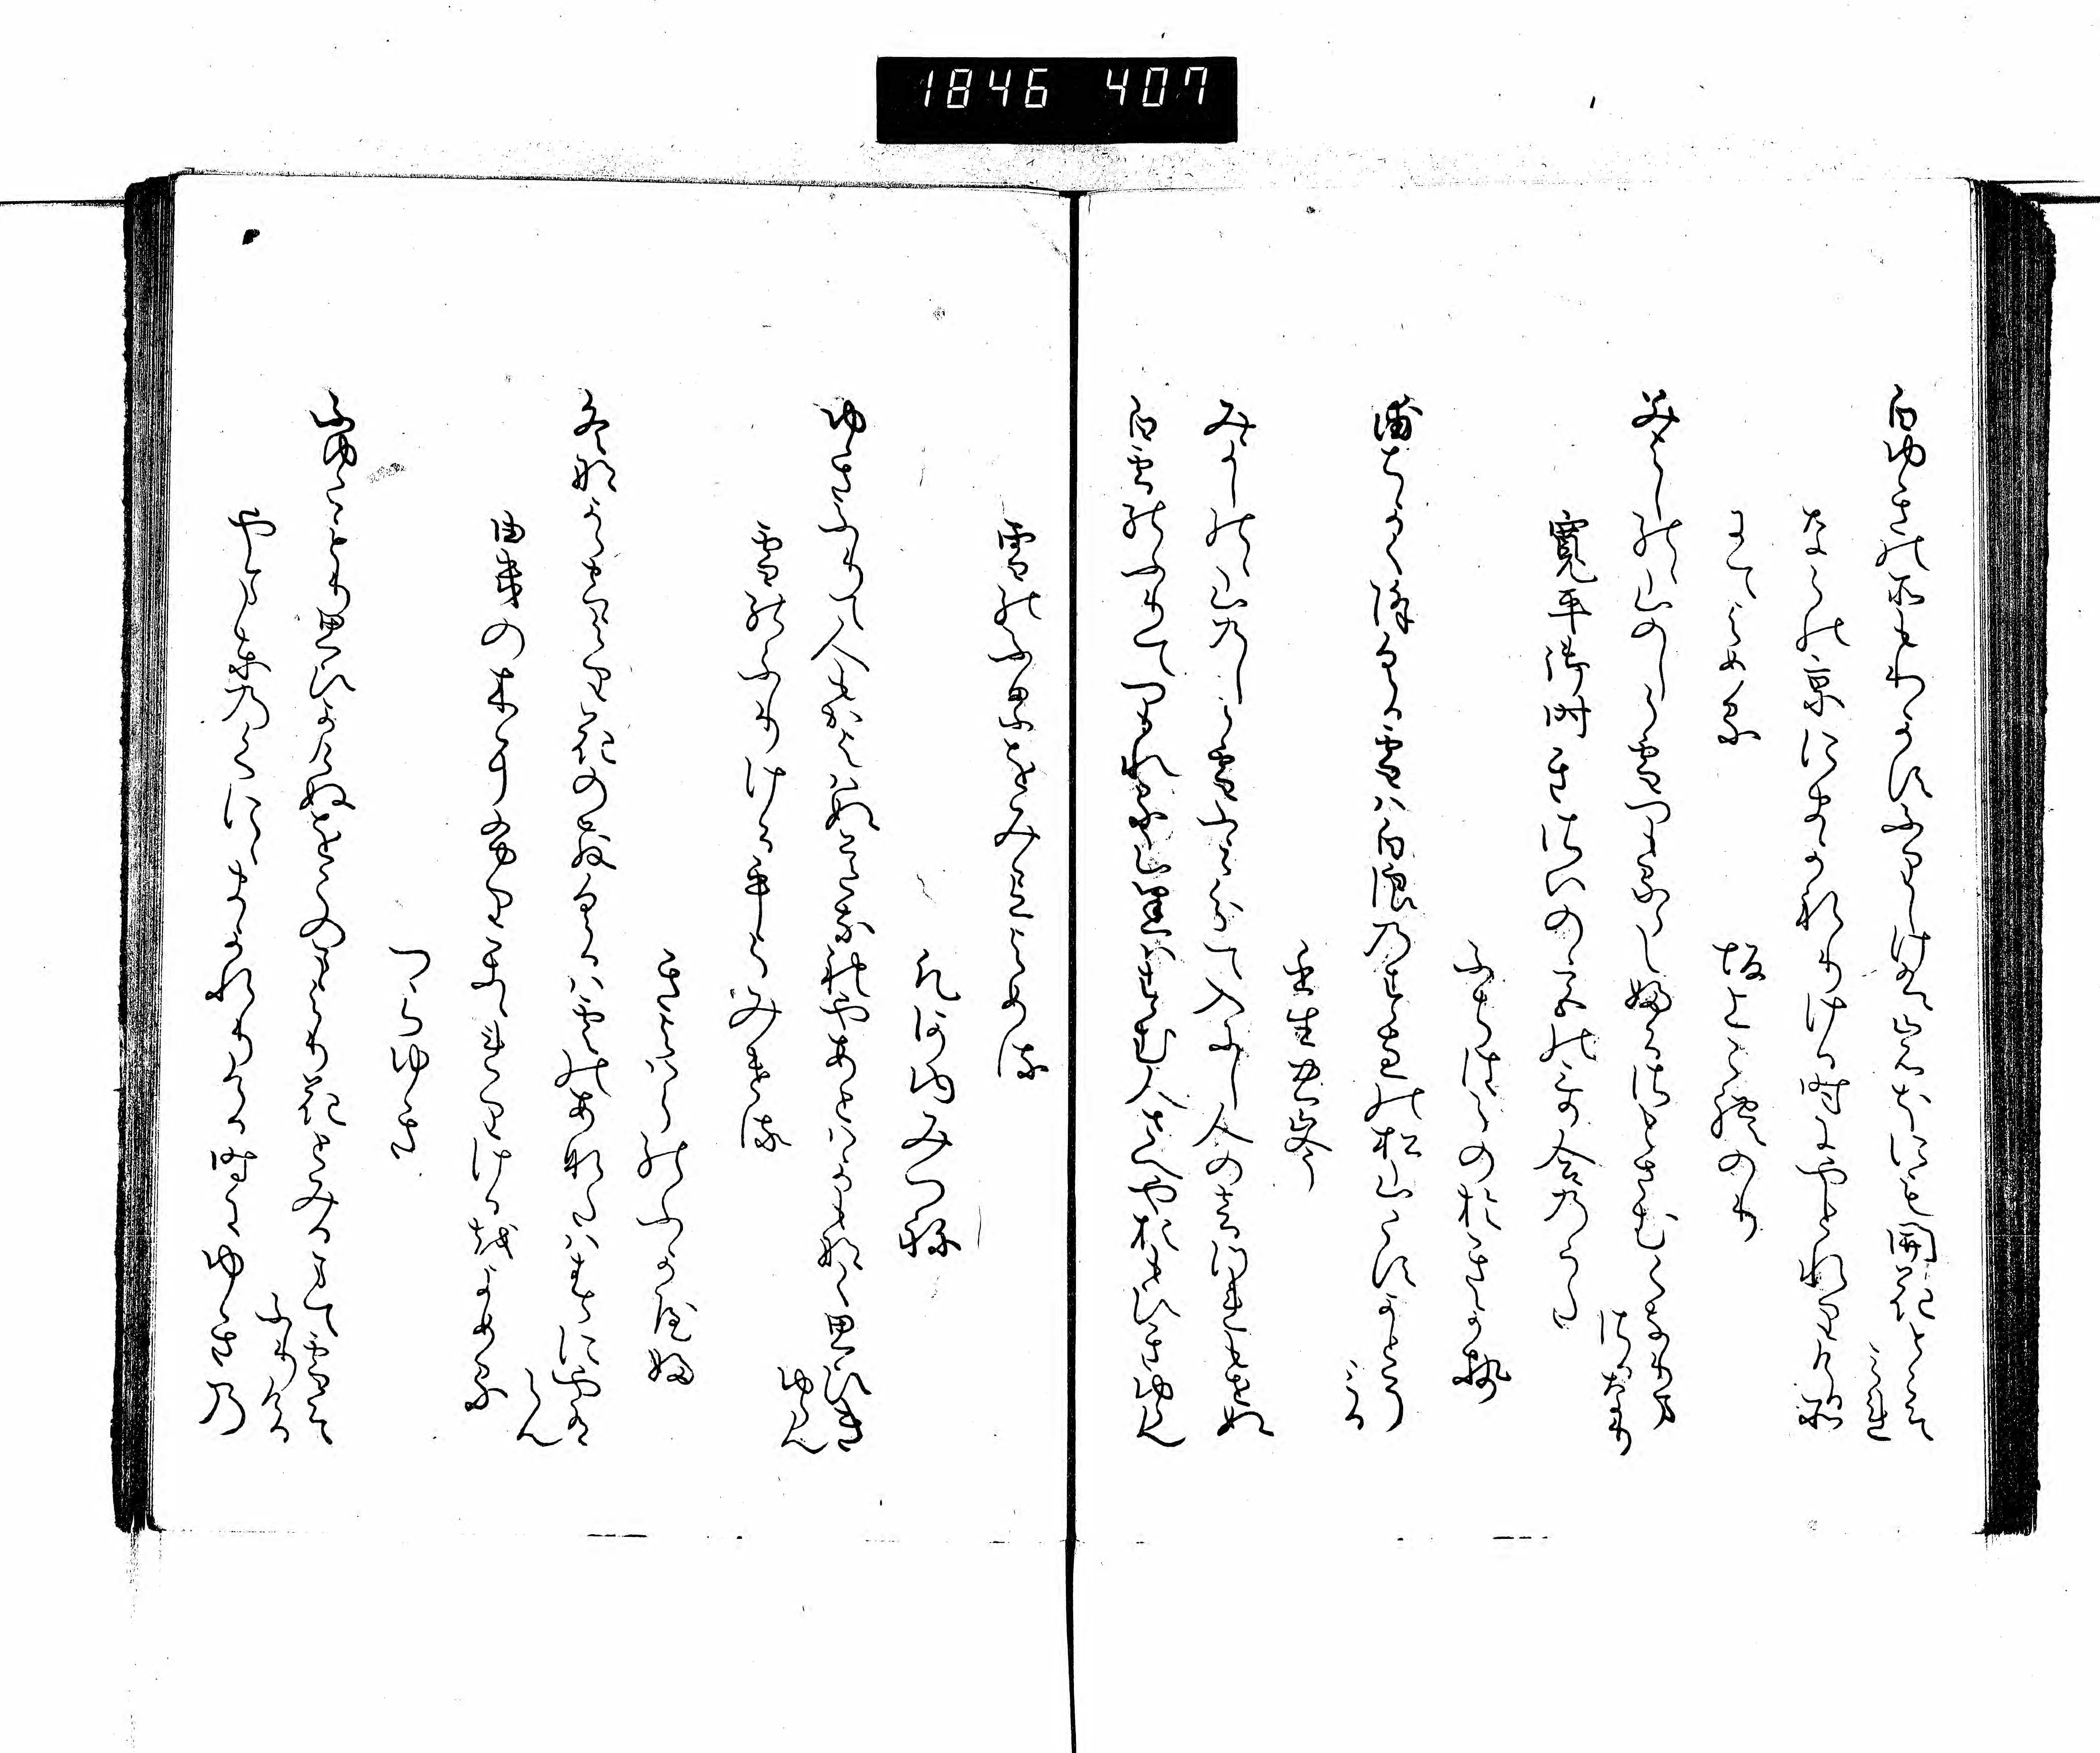 1846 407
白ゆきの所もわかすふりしけはいはほにも開花とこそ
みれ
ならの京にまかれりける時にやとれりける所
にてよめる
坂上これのり
みよしのゝ山のしら雪つもるらし婦る佐とさむくなりま
佐るなり
寛平御時きさいの宮の哥合のうた
ふちはらのおきかせ
浦ちかく降くる雪は白浪乃すゑの松山こすかとそ
みる
壬生忠岑
みよしの山乃しら雪ふみ分て入にし人の音つれもせぬ
白雪のふりてつもれる山里はすむ人さへやおもひきゆらん
雪のふるをみてよめる
凡河内みつね
ゆきふりて人もかよはぬみちなれやあとはかもなく思ひき
ゆらん
雪のふりけるをよみける
きよはらのふかやふ
冬なからそらより花のちりくるは雲のあなたは春にやある
らん
雪の木にふりかゝれりけるをよめる
つらゆき
ふゆこもり思ひかけぬをこのまより花とみるまて雪そ
ふりける
やまとの国にまかれりける時にゆきの